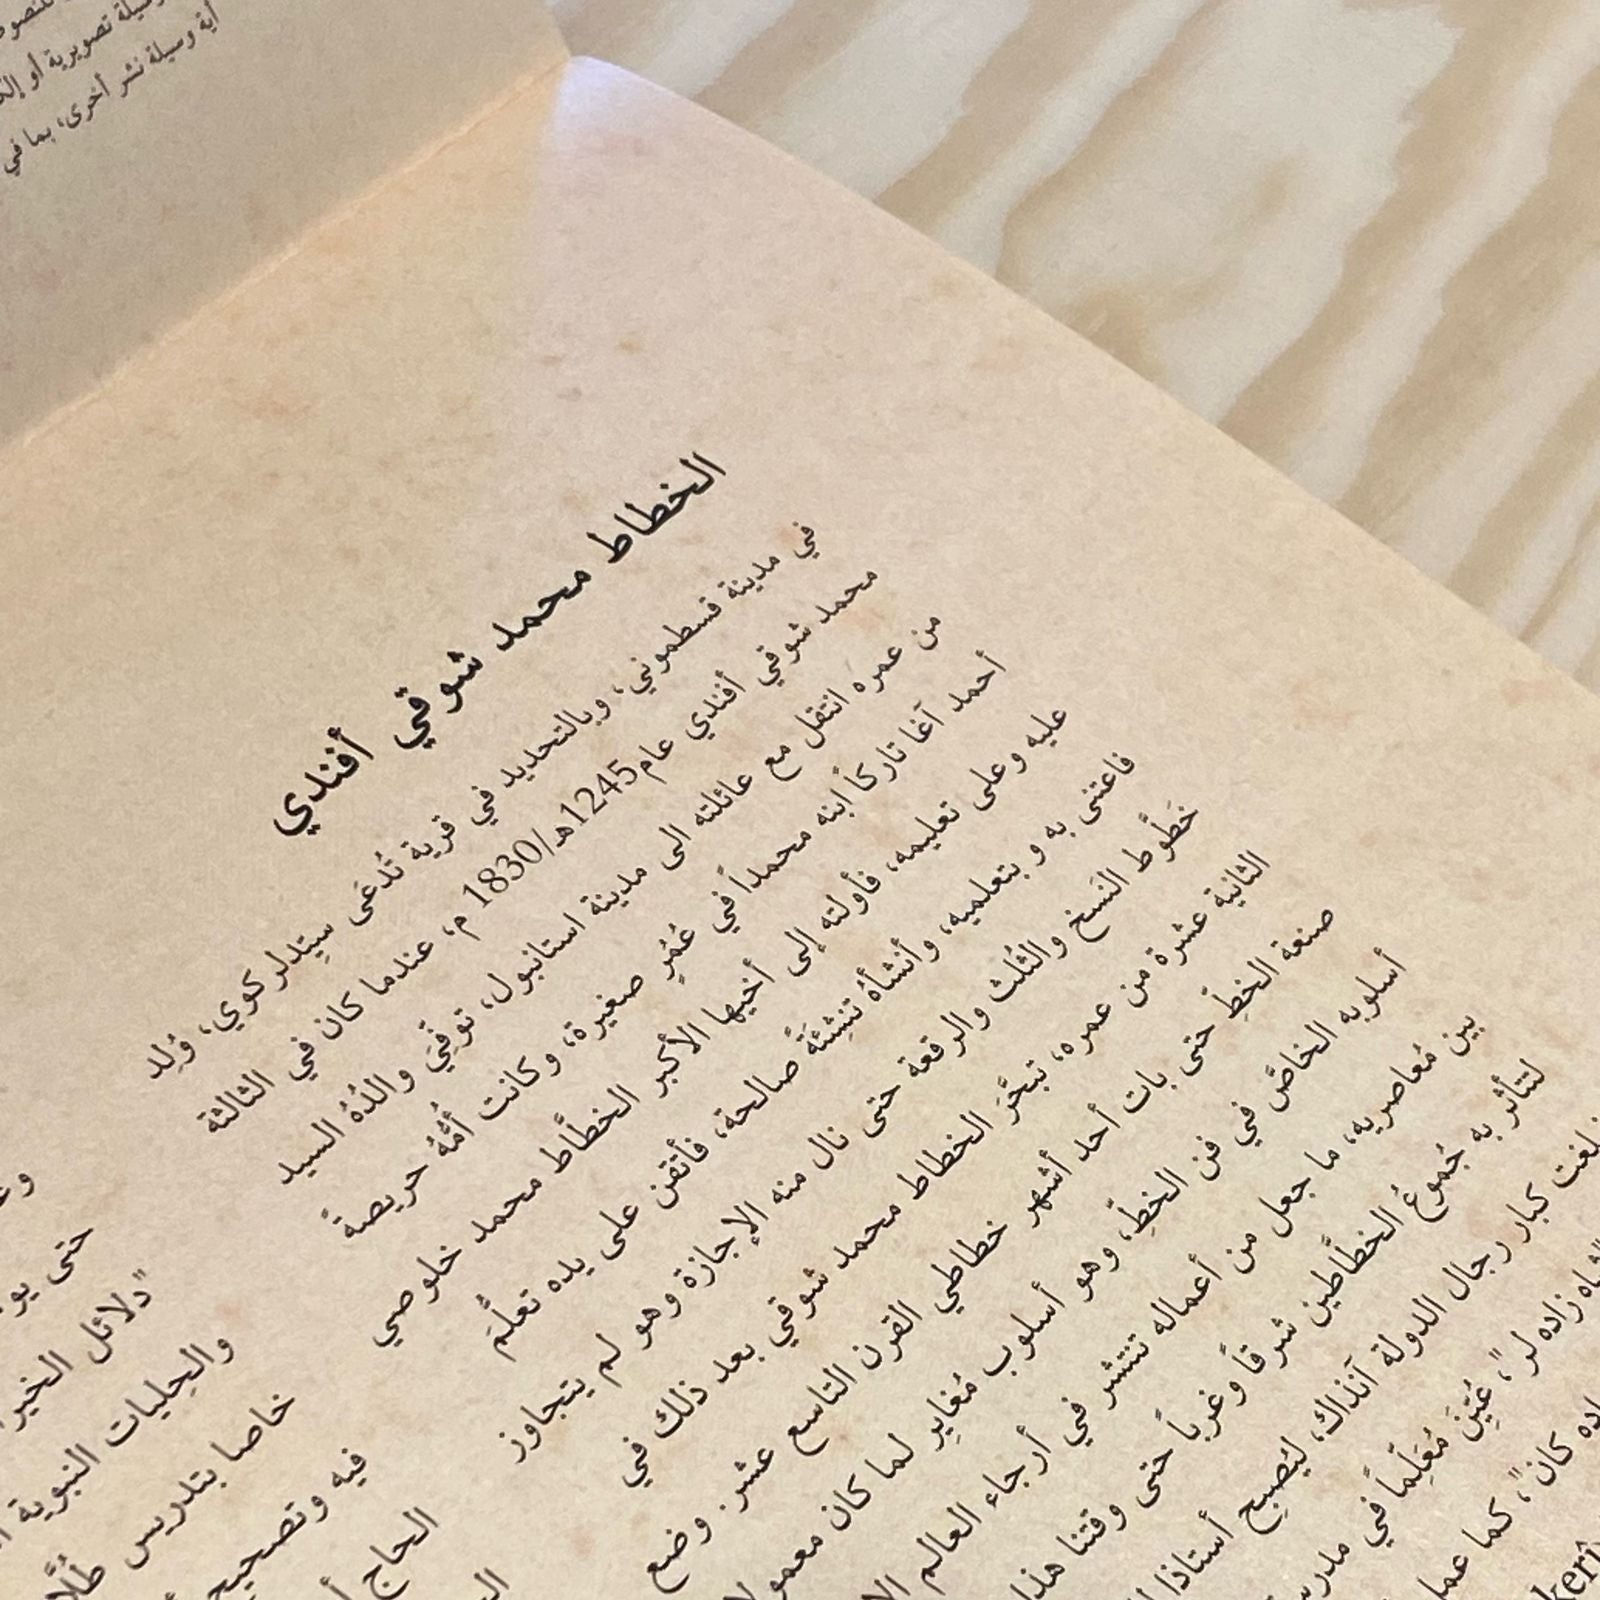 الخطاط محمد شوقي أفندي
في مدينة قسطموني، وبالتحديد في قرية تُدعَى سيِتدلركوي، وُلِد
محمد شوقي أفندي عام1245هـ/1830 م، عندما كان في الثالثة
من عمره انتقل مع عائلته الى مدينة استانبول، توفِّيَ واللُدُهُ السيد
أحمد آغا تاركاً ابنه محمداً في عُمُرٍ صغيرة، وكانت أُمُّهُ حريصةً
عليه وعلى تعليمه، فأولته إلى أخيها الأكبر الخطَّاط محمد خلوصي
فاعتنى به و بتعلميه، وأنشأهُ تنِشئَةً صالحة، فأتقن على يده تعلُّمَ
خطَّوط النَسخ والثُلث والرقعة حتى نال منه الإجازة وهو لم يتجاوز
الثانية عشرة من عمره، تبحَّرَ الخطاط محمد شوقي بعد ذلك في
صنعة الخطِّ حتى بات أحد أشهر خطاطي القرن التاسع عشر. وضع
أسلوبه الخاصَّ في فن الخطِّ، وهو أسلوب مُغايِر لما كان معمولا
بين مُعاصريه، ما جعل من أعماله تنتشر في أرجاء العالم
لتتأثر به جُموعُ الخطَّاطين شرقاً وغرباً حتى وقتنا هذا
كبار رجال الدولة آنذاك، ليُصبِح أستاذا
عُيِّنَ مُعَلِّماً في
كان"، كما
حتى
"دلائل الخير
والحِليات النبوية
خاصا بتدريس
فيه وتصحيح
الحاج
أية وسيلة نشر أخرى، بما في
تصويرية أو